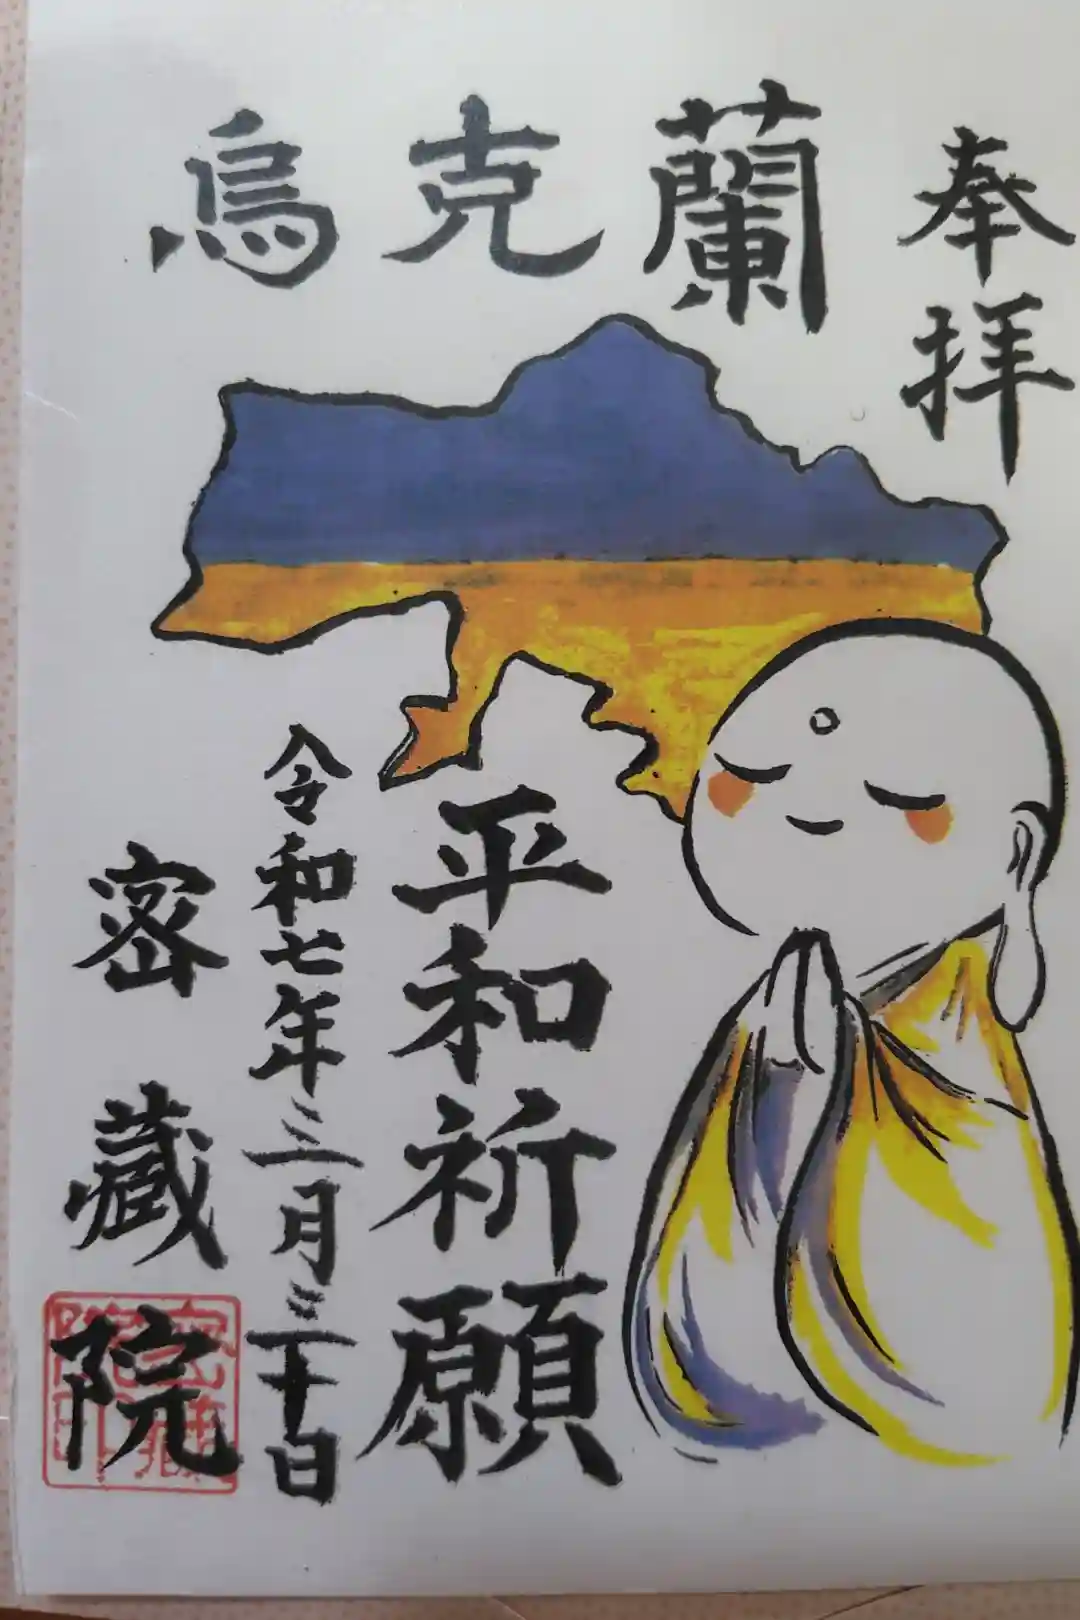 奉拝
烏克蘭
平和祈願
令和七年三月三十日
密藏院